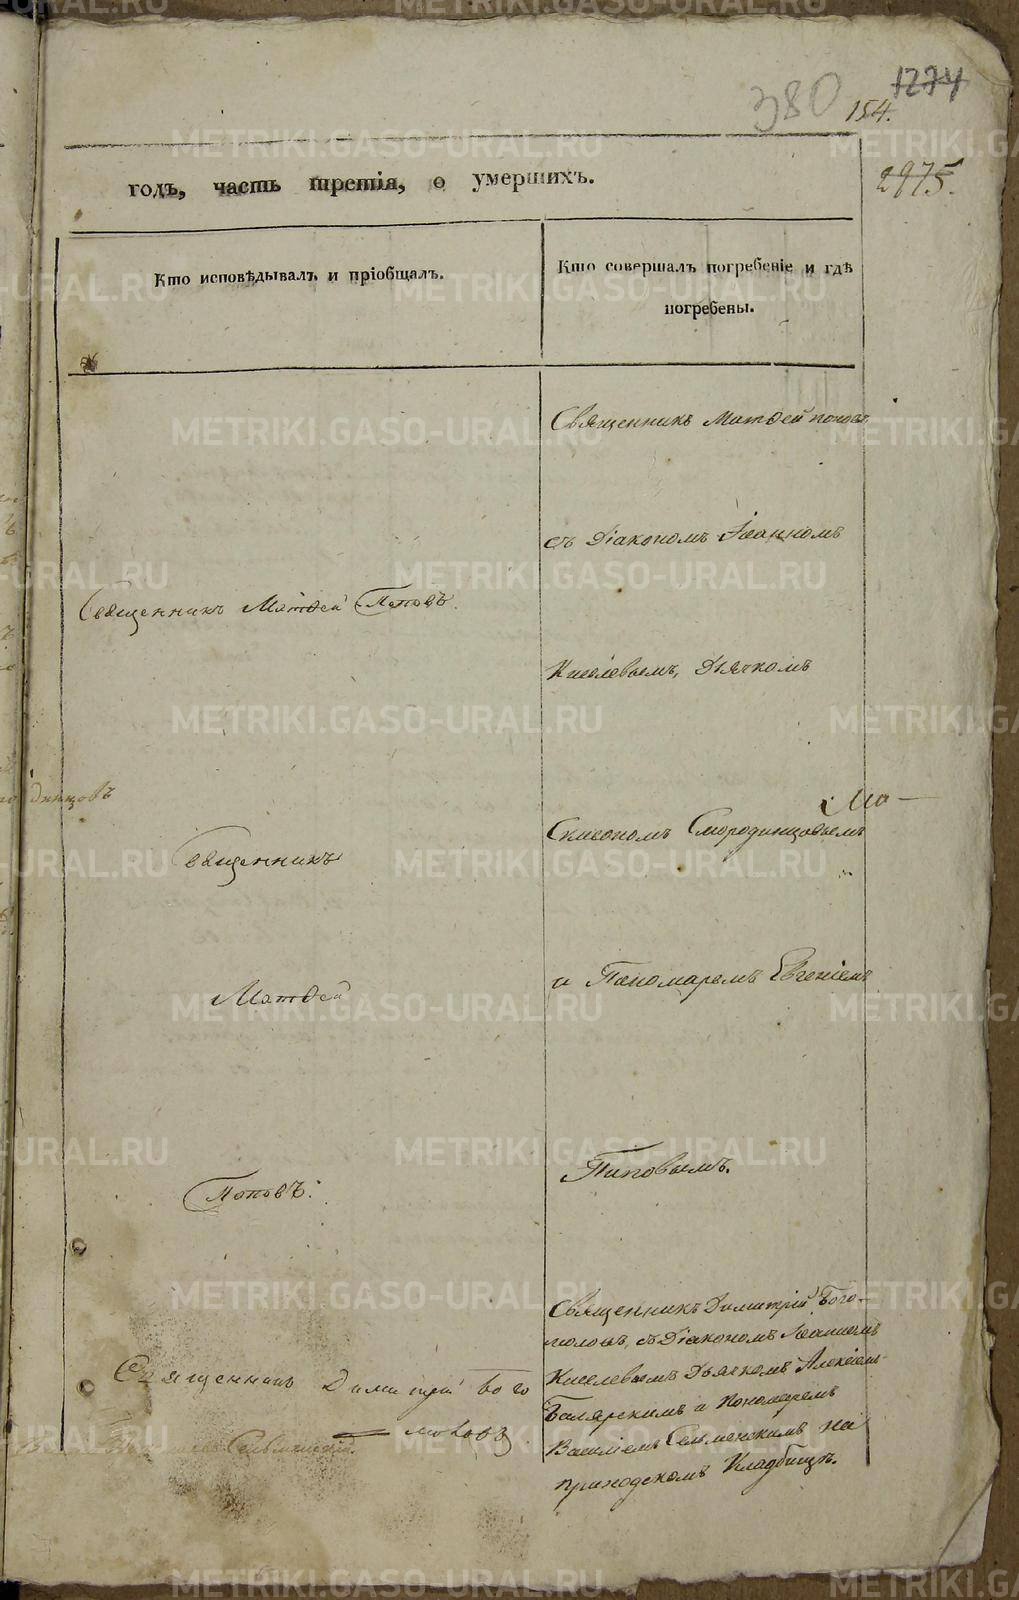 380
1274
154.
2975.
годъ, часть третія, о умершихъ.
Кто исповѣдывалъ и пріобщалъ.
Кто совершалъ погребеніе и гдѣ
погребены.
Священникъ Матѳей Поповъ
съ Діакономъ Іоанномъ
Священникъ Матѳей Поповъ.
Киселевымъ, Дьячкомъ
динцовъ
Симономъ Смородинцовымъ
Священникъ
и Пономаремъ Евгеніемъ
Матѳей
Поповымъ.
Поповъ.
Священникъ Димитрій Бого-
моловъ, съ Діакономъ Іоанномъ
Киселевымъ Дьячкомъ Алексіемъ
Священникъ Димитрій Бого
Боярскимъ и Пономаремъ
моловъ
Василіемъ Сельменскимъ на
приходскомъ Кладбищѣ.
METRIKI.GASO-URAL.RU